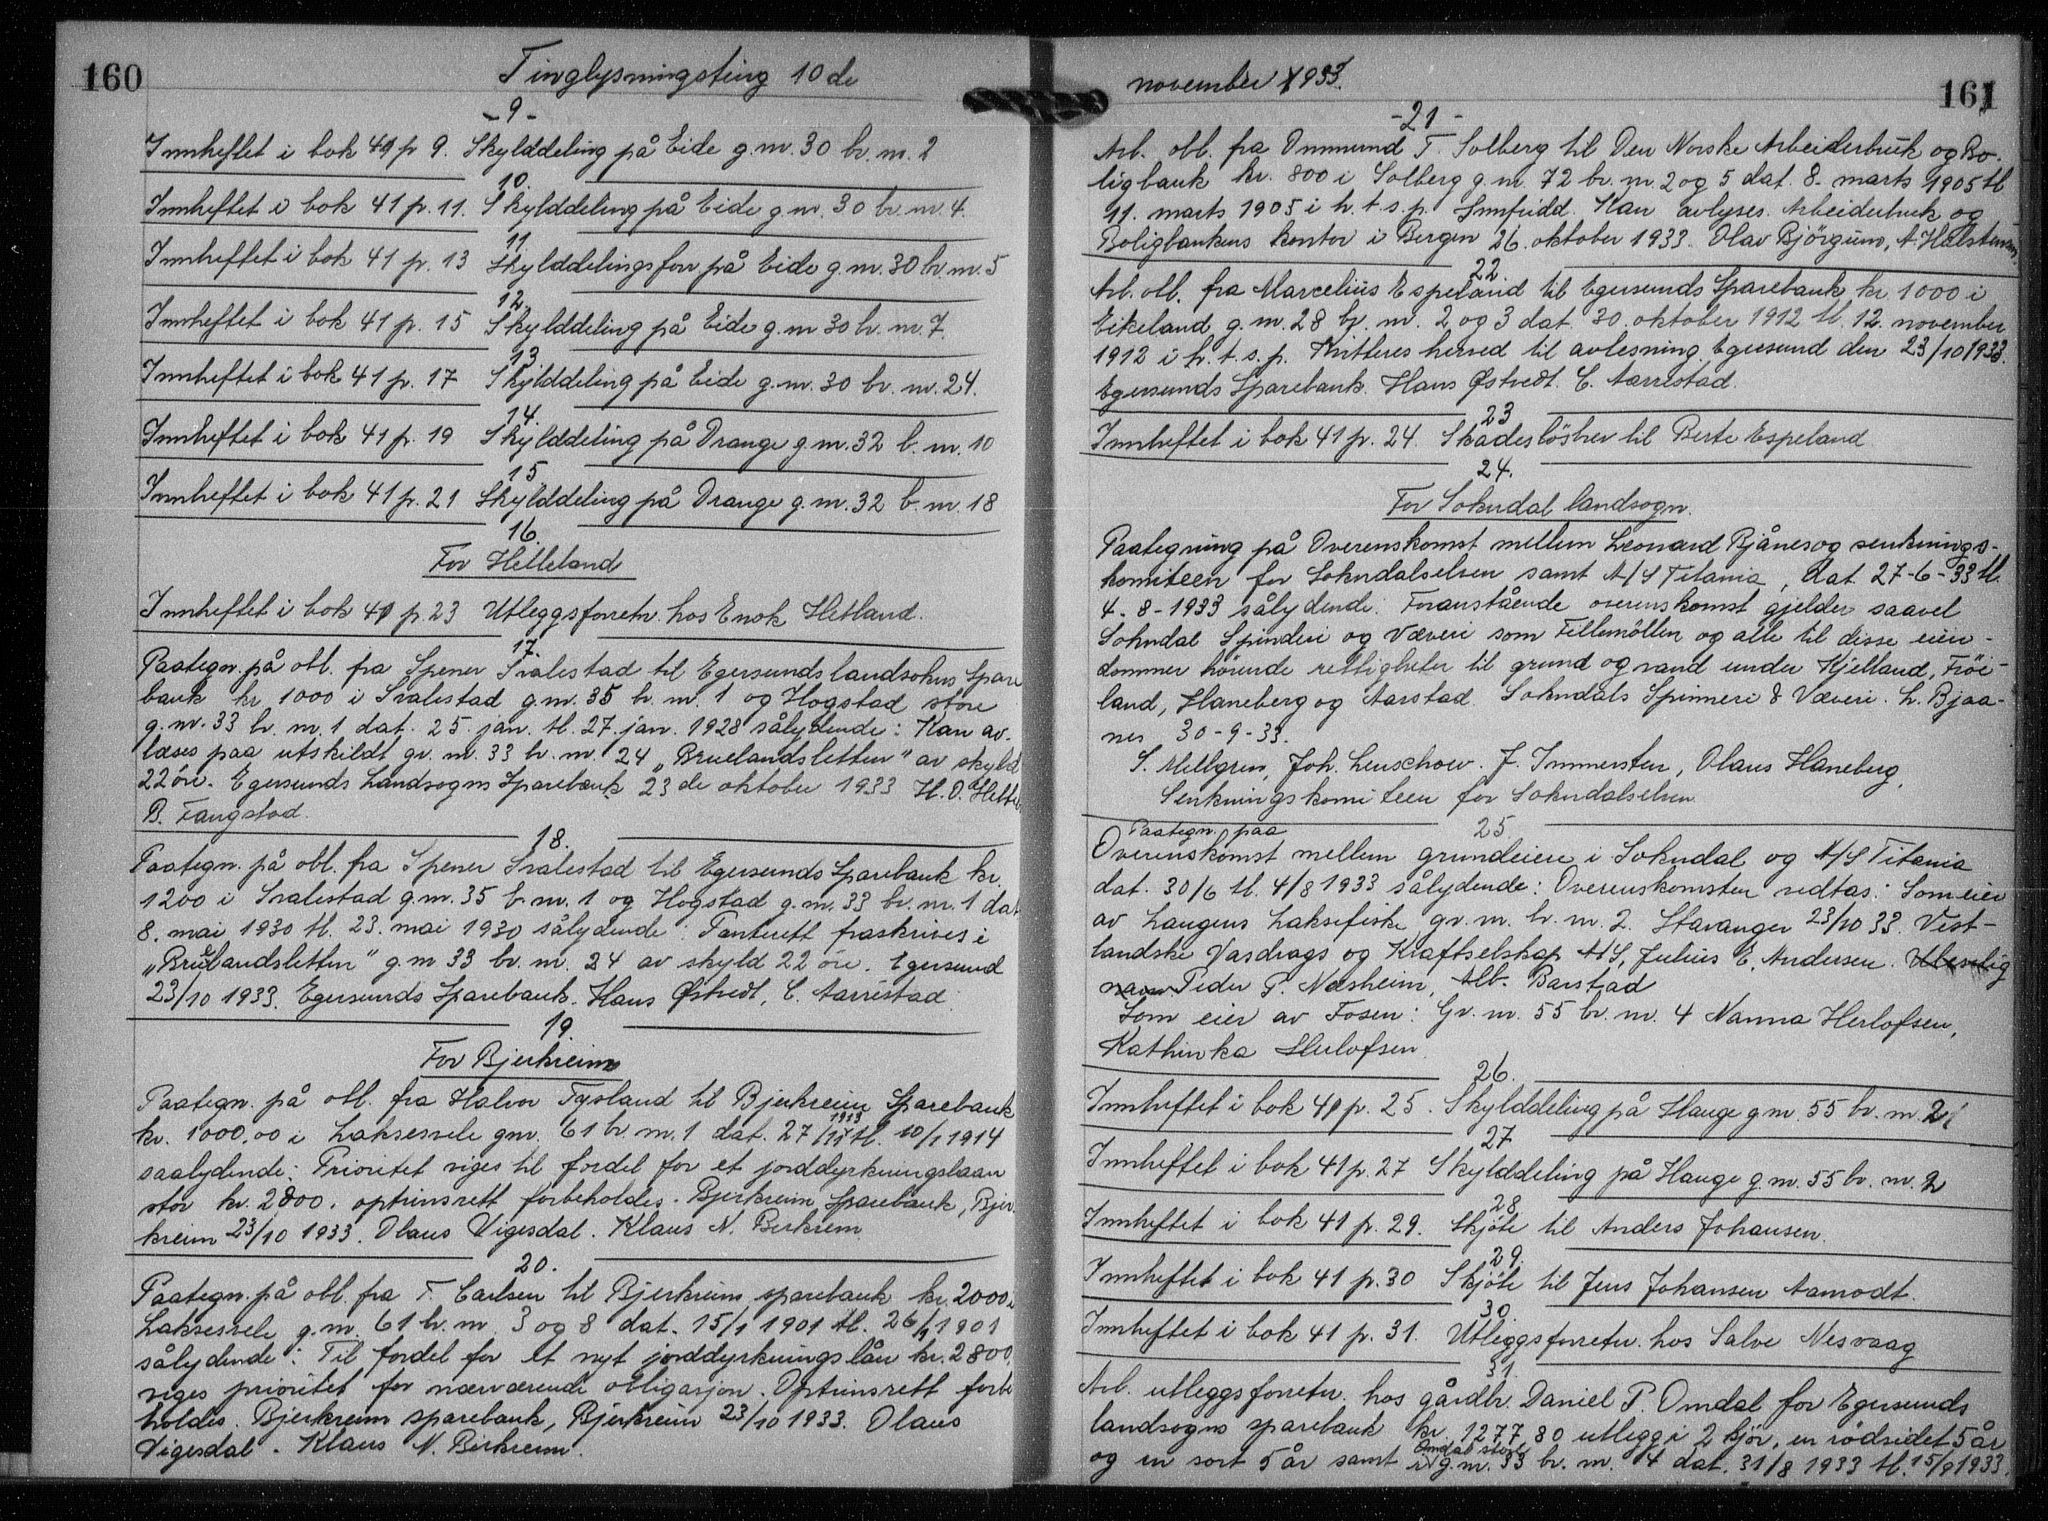 160
Tinglysningsting 10de
-9-
Innheftet i bok 41 p 9. Skylddeling på Eide g.nr. 30 br. nr. 2
10.
Innheftet i bok 41 p. 11. Skylddeling på Eide g.nr. 30 br. nr. 4.
11.
Innheftet i bok 41 p. 13 Skylddelingsforr på Eide g.nr. 30 br. nr. 5
12.
Innheftet i bok 41 p. 15 Skylddeling på Eide g.nr 30 br. nr. 7.
13
Innheftet i bok 41 p. 17 Skylddeling på Eide g.nr. 30 br. nr. 24.
14.
Innheftet i bok 41 p. 19 Skylddeling på Drange g.nr. 32 b. nr. 10
15
Innheftet i bok 41 p. 21 Skylddeling på Drange g.nr. 32 b. nr. 18
16.
For Helleland
Innheftet i bok 41 p. 23 Utleggsforretn. hos Enok Hetland.
17.
Paategn. på obl. fra Spener Svalestad til Egersunds landsokns Spare
bank kr 1000 i Svalestad g.nr. 35 br. nr. 1 og Hogstad store
g.nr. 33 br. nr. 1 dat. 25. jan. tl. 27. jan. 1928 sålydende: Kan av-
læses paa utskildt gr. nr. 33 br. nr. 24 „Bruelandsletten" av skyld
22 öre. Egersunds Landsogns Sparebank 23de oktober 1933 H. O.
B. Fangstad.
18.
Paategn. på obl. fra Spener Svalestad til Egersunds Sparebank kr.
1200 i Svalestad g.nr. 35 b. nr. 1 og Hogstad g.nr. 33 br. nr. 1 dat
8. mai 1930 tl. 23. mai 1930 sålydende: Panterett fraskrives i
„Bruelandsletten" g.nr 33 br. nr. 24 av skyld 22 öre. Egersund
23/10 1933. Egersunds Sparebank. Hans Østvedt, C. Aarrestad.
19.
For Bjerkreim
Paategn. på obl. fra Halvor Tysland til Bjerkreim Sparebank
kr. 1000,00 i Laksesvele gnr. 61 br. nr. 1 dat. 27/ 1913 tl. 10/1 1914
saalydende: Prioritet viges til fordel for et jorddyrkningslaan
stor kr. 2800. optrinsrett forbeholdes. Bjerkreim Sparebank, Bjer
kreim 23/10 1933. Olaus Vigesdal. Klaus N. Berkrem.
20.
Paategn. på obl. fra T. Carlsen til Bjerkreim sparebank kr. 2000 i
Laksesvele g.nr. 61 br. nr. 3 og 8 dat. 15/1 1901 tl. 26/ 1901
sålydende: Til fordel for et nyt jorddyrkningslån kr. 2800,
viges prioritet for nærværende obligasjon. Optrinsrett forbe
holdes. Bjerkreim sparebank, Bjerkreim 23/10 1933. Olaus
Vigesdal. Klaus N. Birkrem.
november 1933.
161
-21-
Avl. obl. fra Ommund T. Solberg til Den Norske Arbeiderbruk og Bo-
ligbank kr. 800 i Solberg g.nr. 72 br. nr. 2 og 5 dat. 8. marts 1905 tl
11. marts 1905 i h.t.s.p. Innfridd. Kan avlyses. Arbeiderbruk og
Boligbankens kontor i Bergen 26. oktober 1933. Olav Björgum, A. Halstensen.
22.
Avl. obl. fra Marcelius Espeland til Egersunds Sparebank kr. 1000 i
Eikeland g.nr. 28 br. nr. 2 og 3 dat. 30. oktober 1912 tl. 12. november
1912 i h.t.s.p. Kvitteres herved til avlesning. Egersund den 23/10 1933.
Egersunds Sparebank. Hans Østvedt. C. Aarrestad.
23
Innheftet i bok 41 p. 24. Skadeslösbrev til Berte Espeland.
24.
For Sokndal landsogn.
Paategning på Overenskomst mellem Leonard Bjånes og senknings-
komiteen for Sokndalselven samt A/S Titania, dat. 27-6-33 tl.
4-8-1933 sålydende: Foranstående overenskomst gjelder saavel
Sokndal Spinderi og Væveri som Fillemöllen og alle til disse eien-
dommer hörende rettigheter til grund og vand under Kjelland, Fröi-
land, Haneberg og Aarstad. Sokndals Spinneri & Væveri. L. Bjaa-
nes 30-9-33.
S. Mellgren, Joh. Leuschow. J. Immersten, Olaus Haneberg,
Senkningskomiteen for Sokndalselven.
25.
Paategn. paa
Overenskomst mellem grundeiere i Sokndal og A/S Titania
dat. 30/6 tl. 4/8 1933 sålydende: Overenskomsten vedtas: Som eier
av Laugens Laksefiske gr. nr. br. nr. 2. Stavanger 23/10 33. Vest-
landske Vasdrags og Kraftselskap A/S, Julius E. Andersen. Uleselig
navn Peder P. Nesheim, Alb. Barstad
Som eier av Fosen: Gr. nr. 55 br. nr. 4 Nanna Herlofsen,
Kathinka Herlofsen.
26.
Innheftet i bok 41 p. 25. Skylddeling på Hauge gnr. 55 br. nr. 2
27
Innheftet i bok 41 p. 27 Skylddeling på Hauge g.nr. 55 br. nr. 2
28
Innheftet i bok 41 p. 29. Skjöte til Anders Johansen.
29.
Innheftet i bok 41 p. 30 Skjöte til Jens Johansen Aamodt.
30.
Innheftet i bok 41 p. 31. Utleggsforretn. hos Salve Nesvaag
31.
Avl. utleggsforretn. hos gårdbr. Daniel P. Omdal for Egersunds
landsogns sparebank kr. 1277 80 utlegg i 2 kjör, en rödsidet 5 år
og en sort 5 år samt i Omdal store g.nr. 33 br. nr. 4 dat. 31/8 1933 tl. 15/9 1933.